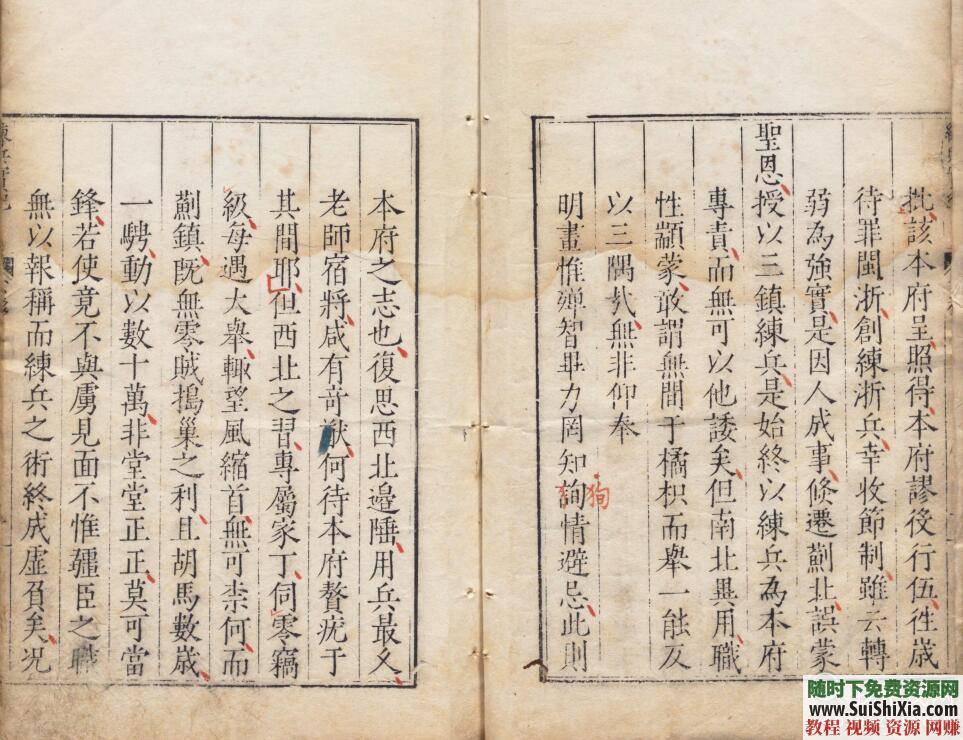 批該本府呈照得本府謬後行伍徃歲
待罪閩浙創練浙兵幸收節制雖云轉
弱為強實是因人成事倏遷薊北誤蒙
聖恩授以三鎮練兵是始終以練兵為本府
專責而無可以他諉矣但南北異用職
性顓蒙敢謂無間于橘枳而舉一能反
以三隅哉無非仰奉
明畫惟殫智畢力罔知詢情避忌此則
狥
本府之志也復思西北邊陲用兵最久
老師宿將咸有奇猷何待本府贅疣于
其間耶但西北之習專屬家丁伺零竊
級每遇大舉輙望風縮首無可柰何而
薊鎮既無零賊搗巢之利且胡馬數歲
一騁動以數十萬非堂堂正正莫可當
鋒若使竟不與虜見面不惟疆臣之職
無以報稱而練兵之術終成虛負矣况
随时下免费资源网
www.SuiShiXia.com
教程 视频 资源 网赚